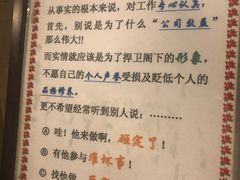 从事实的根本来说，对工作专心认真，
首先，别说是为了什么“公司效益”
那么伟大!!
而实情就应该是为了捍卫阁下的形象，
不愿自己的个人声誉受损及贬低个人的
品格修养。
更不希望经常听到别人说：………
Ⓐ 哇！他来做啊，硕定了！
Ⓑ 有他参与准坏事！
Ⓒ 找他做